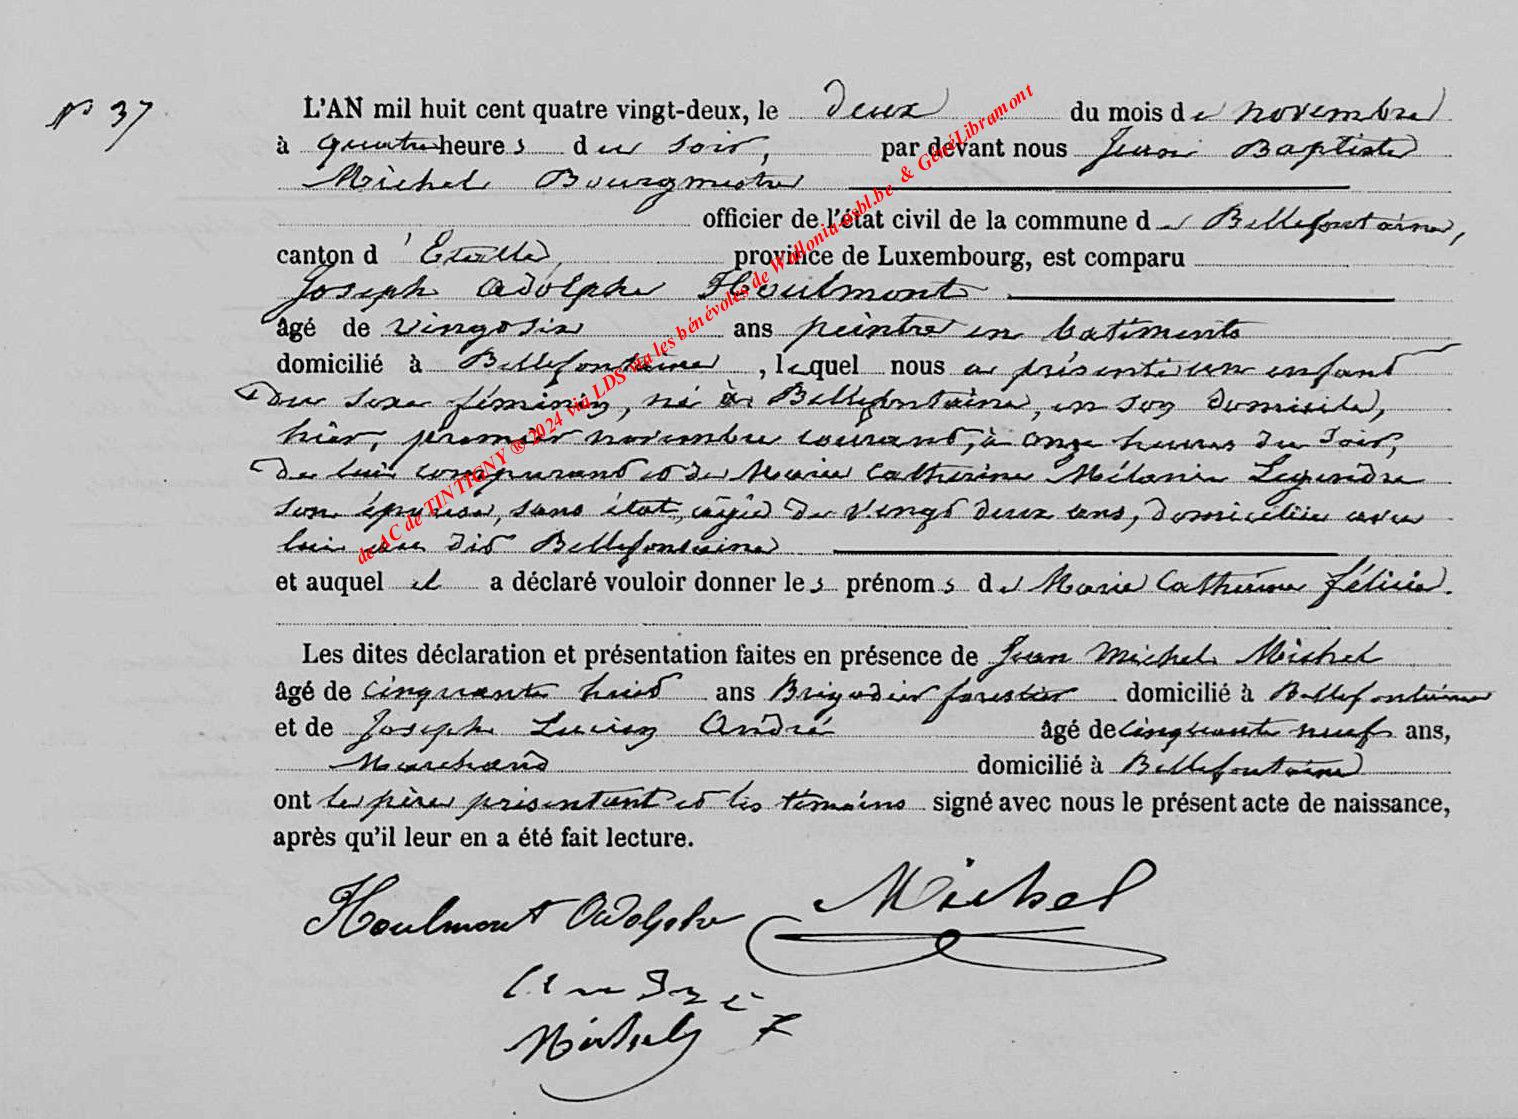 N° 37
L'AN mil huit cent quatre vingt-deux, le deux du mois de novembre
à quatre heures du soir, par devant nous Jean Baptiste
Michel Bourgmestre
officier de l'état civil de la commune de Bellefontaine,
canton d'Etalle, province de Luxembourg, est comparu
Joseph Adolphe Houlmont
âgé de vingtsix ans peintre en batiments
domicilié à Bellefontaine, lequel nous a présenté un enfant
du sexe féminin, né à Bellefontaine, en son domicile,
hier, premier novembre courant, à onze heures du soir,
de lui comparant et de Marie Catherine Mélanie Legendre
son épouse, sans état, âgée de vingt deux ans, domiciliée avec
lui au dit Bellefontaine
et auquel il a déclaré vouloir donner les prénoms de Marie Catherine Félicie.
Les dites déclaration et présentation faites en présence de Jean Michel Michel
âgé de cinquante huit ans Brigadier forestier domicilié à Bellefontaine
et de Joseph Lucien André âgé de cinquante neuf ans,
Marchand domicilié à Bellefontaine
ont le père présentant et les témoins signé avec nous le présent acte de naissance,
après qu'il leur en a été fait lecture.
Houlmont Adolphe Michel
André
Michel
de AC de TINTIGNY ® 2024 via LDS via les bénévoles de Wallonia-asbl.be & GénéLibramont